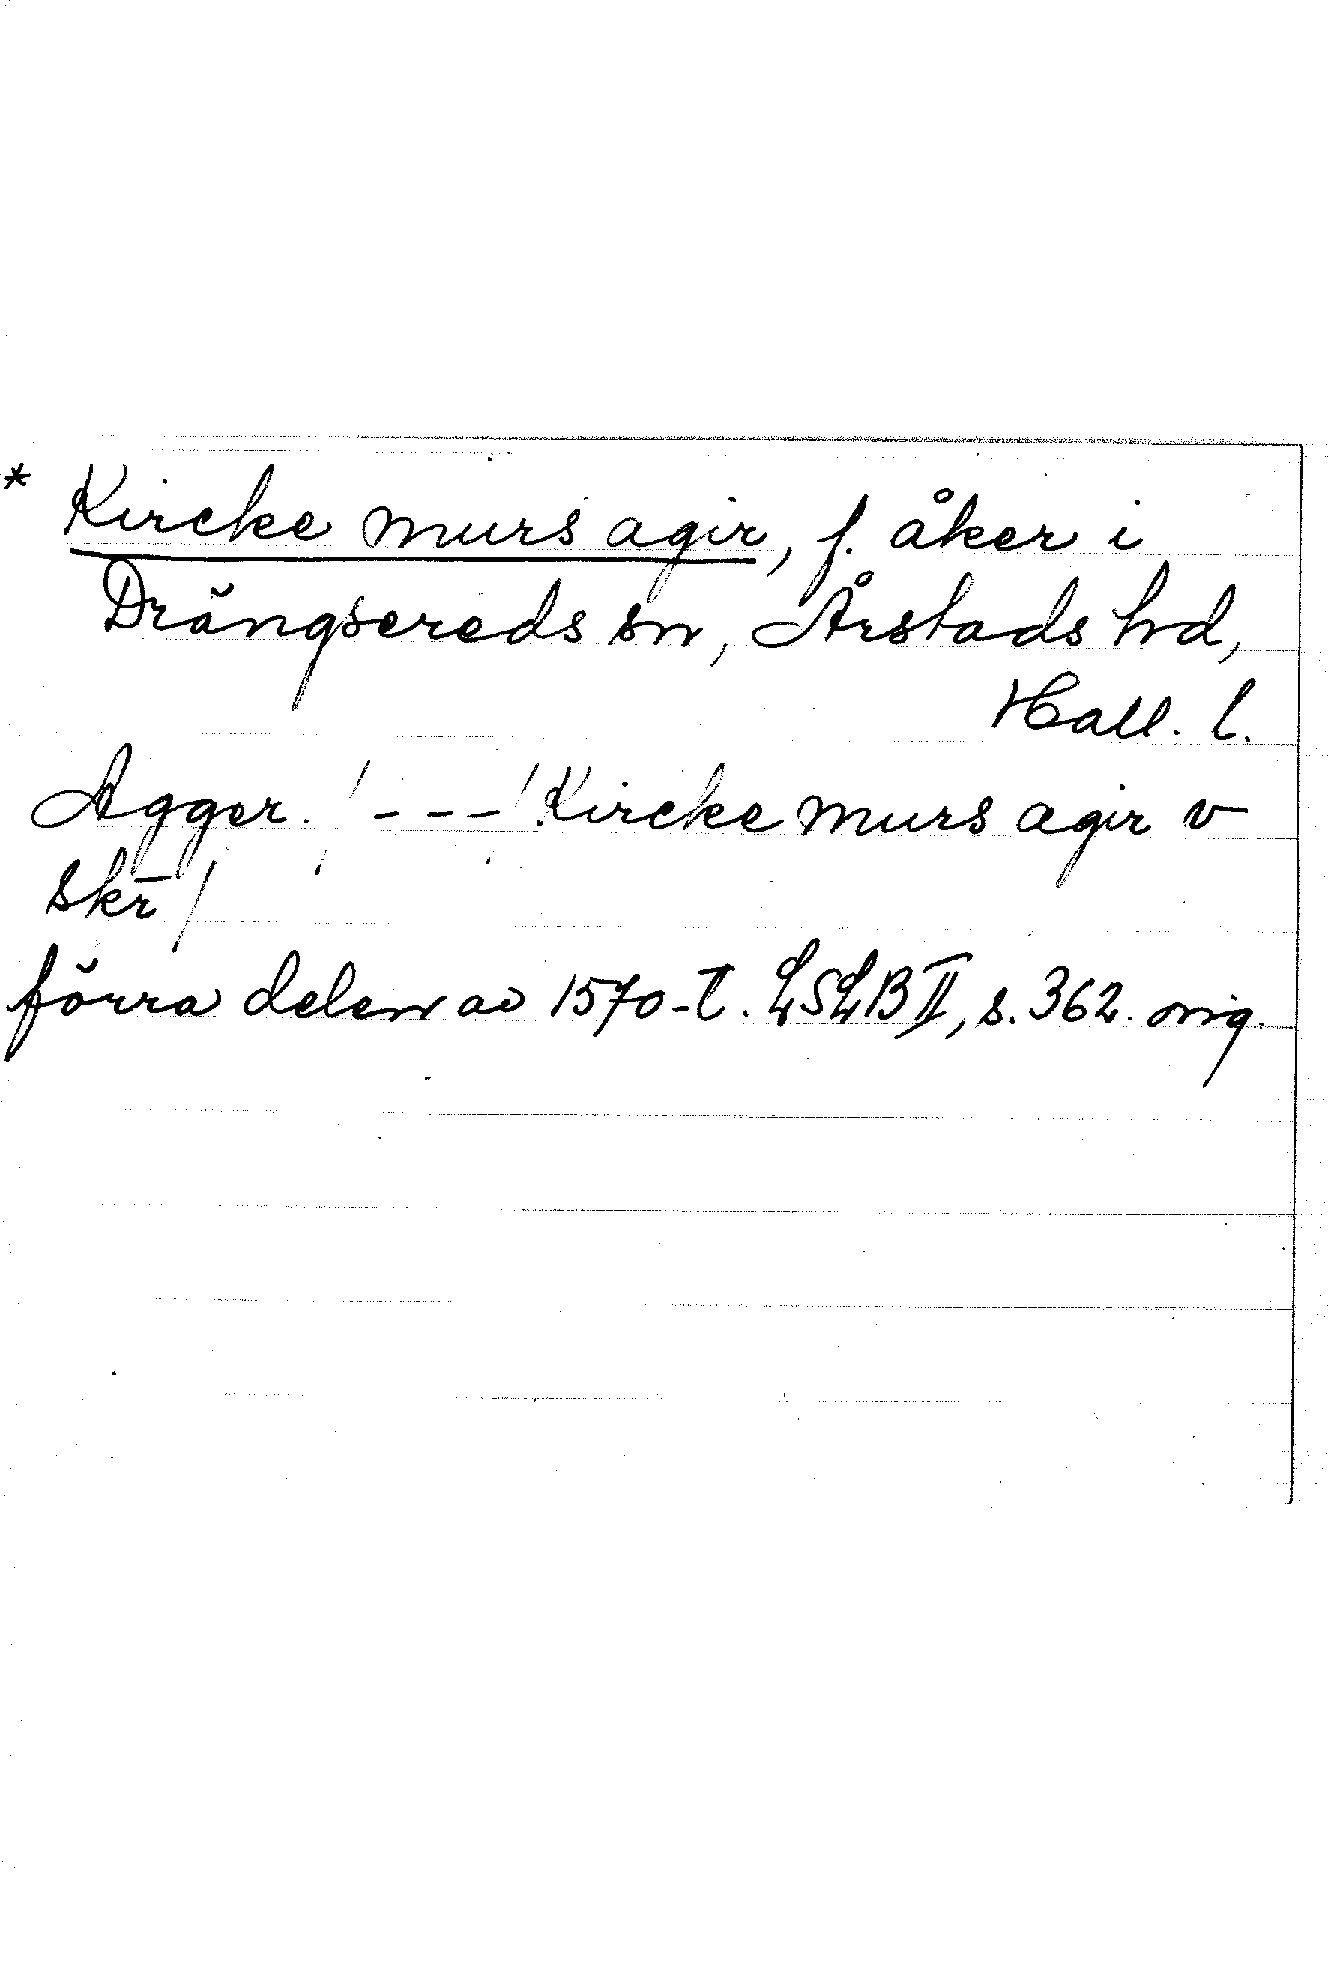 * Kircke murs agir, f. åker i
Drängsereds sn, Årstads hd,
Hall. l.
Agger. / - - - / Kircke murs agir v
skr̄ /
förra delen av 1570-t. LSLB II, s. 362. orig.